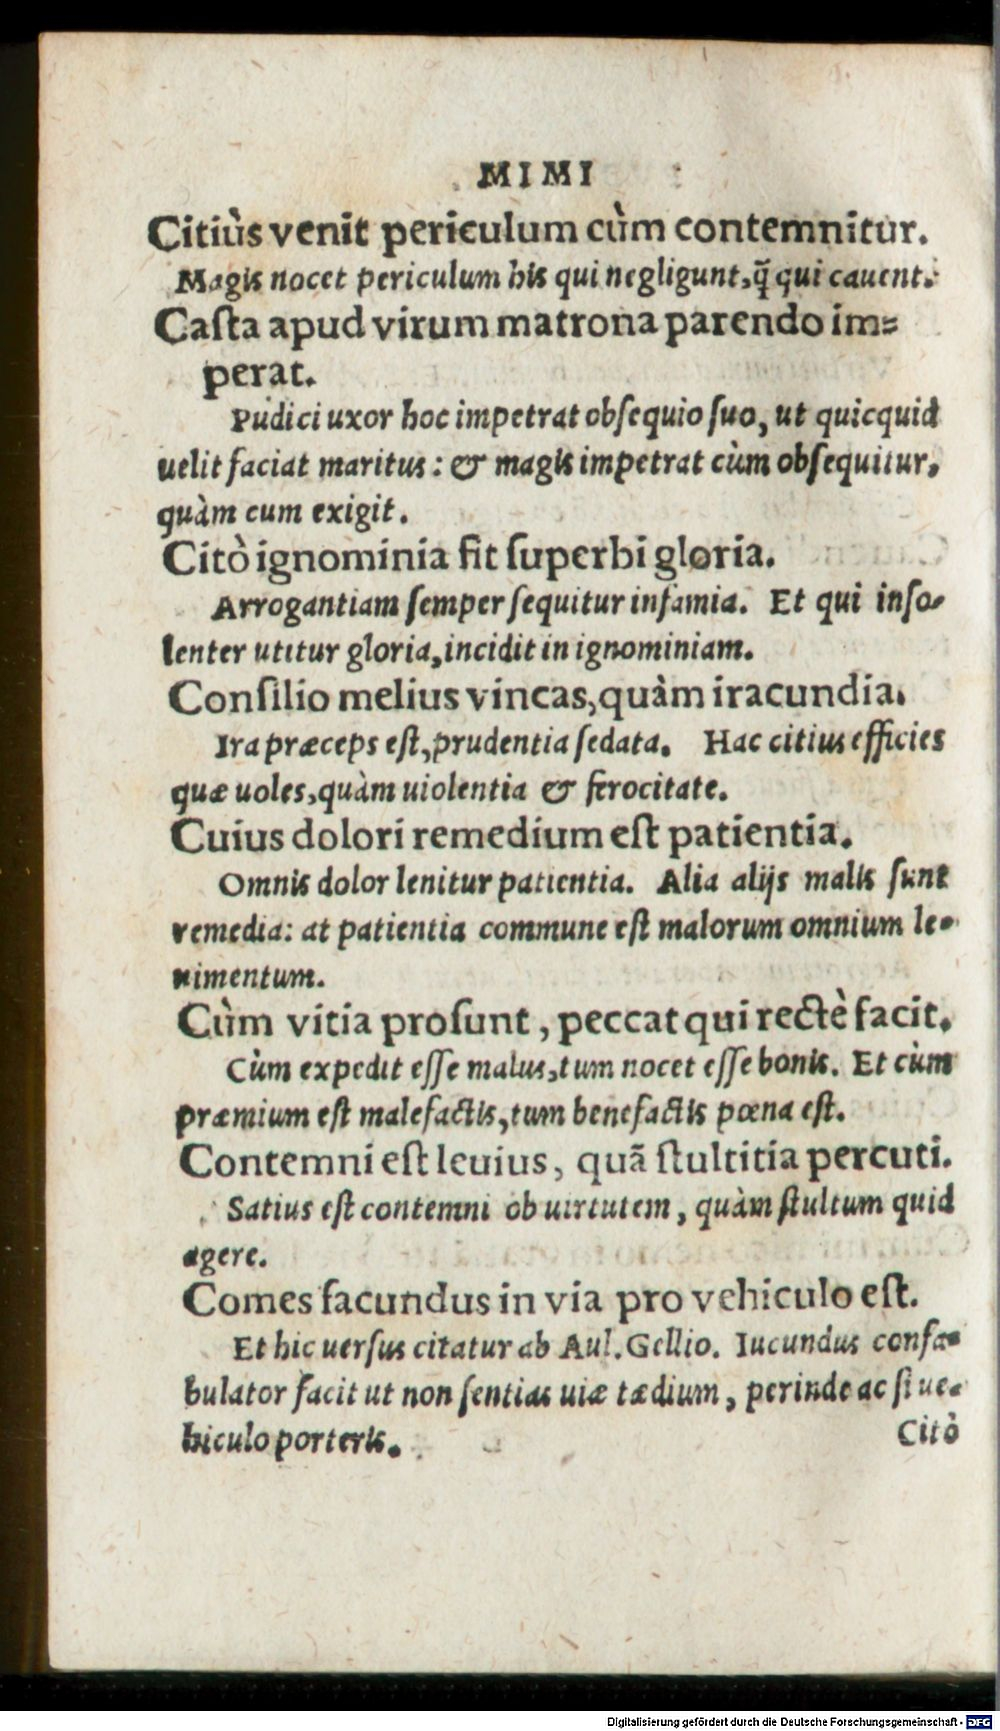 MIMI
Citiùs venit periculum cùm contemnitur.
Magis nocet periculum his qui negligunt, q̃ qui cauent.
Caſta apud virum matrona parendo im=
perat.
Pudici uxor hoc impetrat obſequio ſuo, ut quicquid
uelit faciat maritus: & magis impetrat cùm obſequitur,
quàm cum exigit.
Citò ignominia fit ſuperbi gloria.
Arrogantiam ſemper ſequitur infamia. Et qui inſo-
lenter utitur gloria, incidit in ignominiam.
Conſilio melius vincas, quàm iracundia.
Ira præceps eſt, prudentia ſedata. Hac citius efficies
quæ uoles, quàm uiolentia & ferocitate.
Cuius dolori remedium eſt patientia.
Omnis dolor lenitur patientia. Alia alijs malis ſunt
remedia: at patientia commune eſt malorum omnium le-
nimentum.
Cùm vitia proſunt, peccat qui rectè facit.
Cùm expedit eſſe malus, tum nocet eſſe bonis. Et cùm
præmium eſt malefactis, tum benefactis pœna eſt.
Contemni eſt leuius, quã ſtultitia percuti.
Satius eſt contemni ob uirtutem, quàm ſtultum quid
agere.
Comes facundus in via pro vehiculo eſt.
Et hic uerſus citatur ab Aul. Gellio. Iucundus confa-
bulator facit ut non ſentias uiæ tædium, perinde ac ſi ue-
hiculo porteris.
Citò
Digitalisierung gefördert durch die Deutsche Forschungsgemeinschaft - DFG